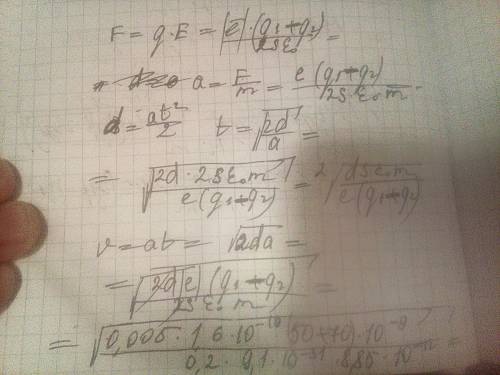 F = q·E = |e|·(q₁+q₂)/2Sε₀ =
= a = F/m = e(q₁+q₂)/2Sε₀m
d = at²/2 t = √(2d/a) =
= √(2d·2Sε₀m/e(q₁+q₂)) = 2√(dSε₀m/e(q₁+q₂))
v = at = √(2da) =
= √(2d|e|(q₁+q₂)/2Sε₀m) =
= √(0,005·1,6·10⁻¹⁹(50+70)·10⁻⁹/0,2·9,1·10⁻³¹·8,85·10⁻¹²) =